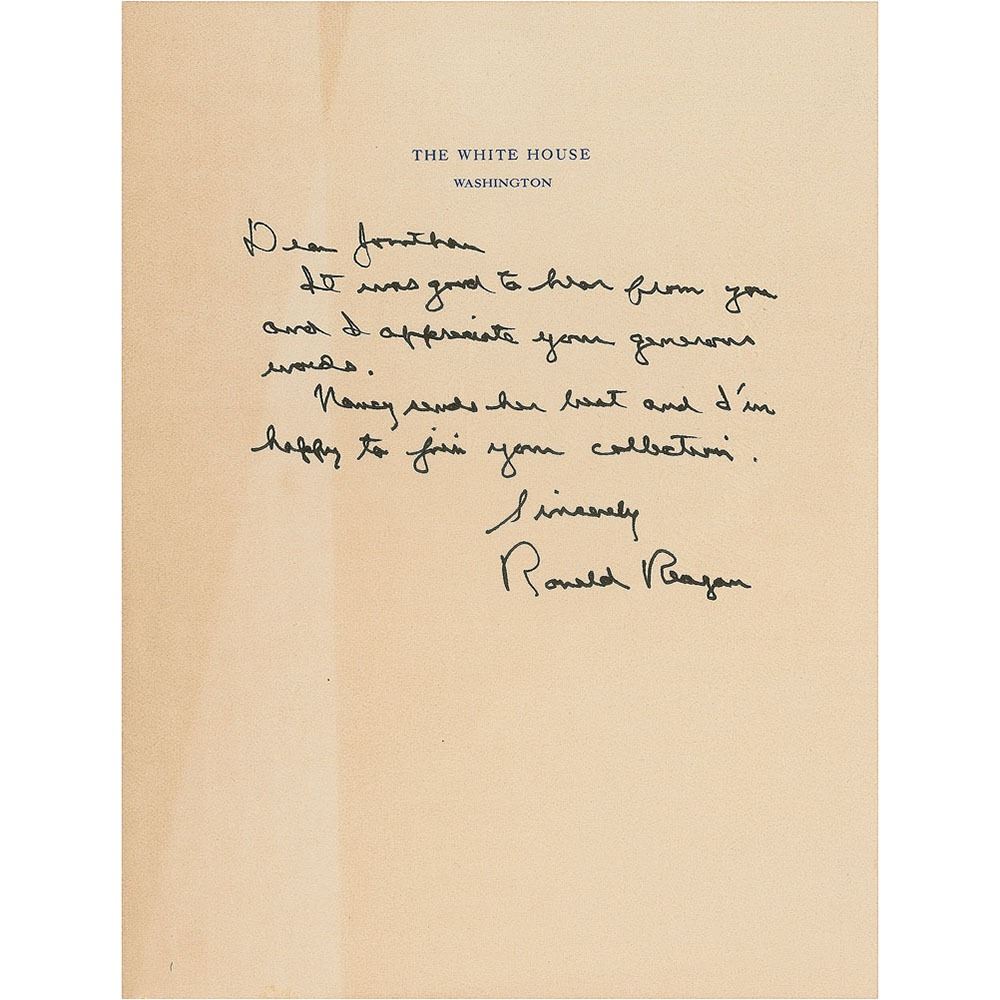 THE WHITE HOUSE
WASHINGTON
Dear Jonathan
It was good to hear from you
and I appreciate your generous
words.
Nancy sends her best and I'm
happy to join your collection.
Sincerely
Ronald Reagan